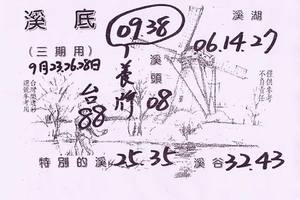 溪底
(三期用)
9月23.26.28日
台88
09.38
養牌
溪頭
08
溪湖
06.14.27
僅供參考
不負責任
特別的溪 25.35
溪谷 32.43